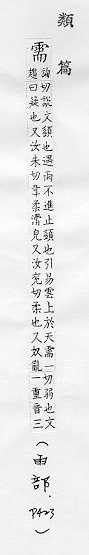 類篇
需 詢趨切說文䇓也遇雨不進止䇓也引易雲上於天需一曰疑也又汝朱切韋柔滑皃又汝兗切柔也又奴亂切弱也文一重音三(雨部.P423)